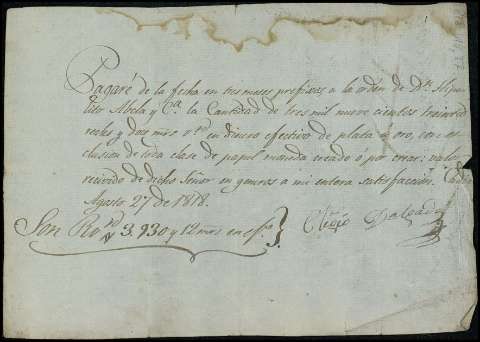 Pagaré de la fecha en tres meses prefixos a la orden de Dn. Hipo-
lito Abela y Ca. la Cantidad de tres mil nueve cientos treinta
reales y doce mrs vn en dinero efectivo de plata u oro, con ex-
clusion de toda clase de papel moneda creado ó por crear, valor
recivido de dicho Señor en generos a mi entera satisfaccion.
Agosto 27 de 1818.
Son Rs vn 3.930 y 12 mrs en efvo
Delgado